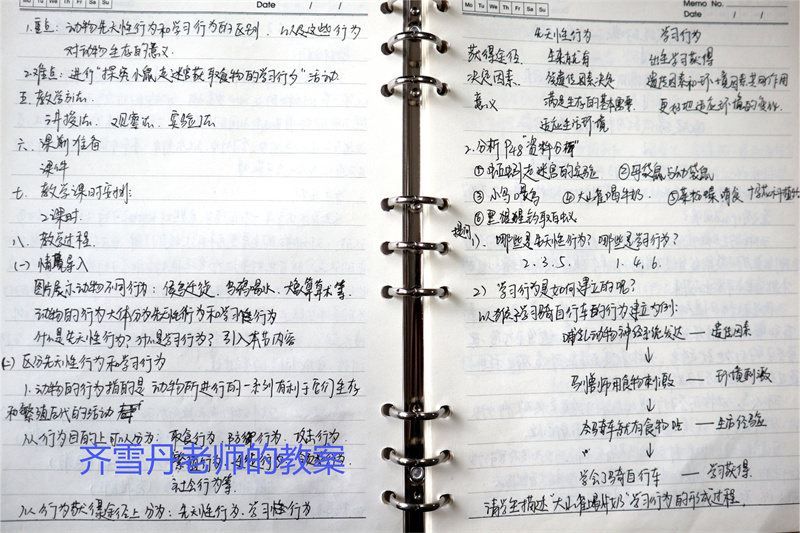 Mo Tu We Th Fr Sa Su
Date / /
1.重点：动物先天性行为和学习行为的区别，以及这些行为
对动物生存的意义.
2.难点：进行"探究小鼠走迷宫获取食物的学习行为"活动.
五.教学方法.
讲授法、观察法、实验法
六、课前准备
课件
七、教学课时安排:
2课时.
八、教学过程.
(一)情景导入
图片展示动物不同行为：
动物的行为大体分为先天性行为和学习性行为
什么是先天性行为？什么是学习行为？引入本节内容
(二)区分先天性行为和学习行为
1.动物的行为指的是动物所进行的一系列有利于它们生存
和繁殖后代的活动
从行为目的上可以分为：取食行为、防御行为、攻击行为、
繁殖行为、
社会行为等.
从行为获得途径上分为：先天性行为、学习性行为
齐雪丹老师的教案
Mo Tu We Th Fr Sa Su
Memo No.
Date / /
先天性行为 学习行为
获得途径 生来就有 出生学习获得
决定因素. 由遗传因素决定 遗传因素和环境因素共同作用
意义 满足生存的基本需要 更好地适应环境的变化.
适应生活环境
2.分析P48"资料分析"
①走迷宫的实验 ②母袋鼠与幼袋鼠
③小鸟喂鱼 ④大山雀喝牛奶. ⑤菜粉蝶 十字花科植物
⑥黑猩猩钓取白蚁
提问
1).哪些是先天性行为？哪些是学习行为？
2.3.5. 1.4.6.
2)学习行为是如何建立的呢？
以猴子学习骑自行车的行为建立为例:
哺乳动物神经系统发达 — 遗传因素
↓
驯兽师用食物刺激 — 环境刺激
↓
会骑车就有食物吃 — 生活经验
↓
学会了骑自行车 — 学习获得.
请学生描述"大山雀喝牛奶"学习行为的形成过程.